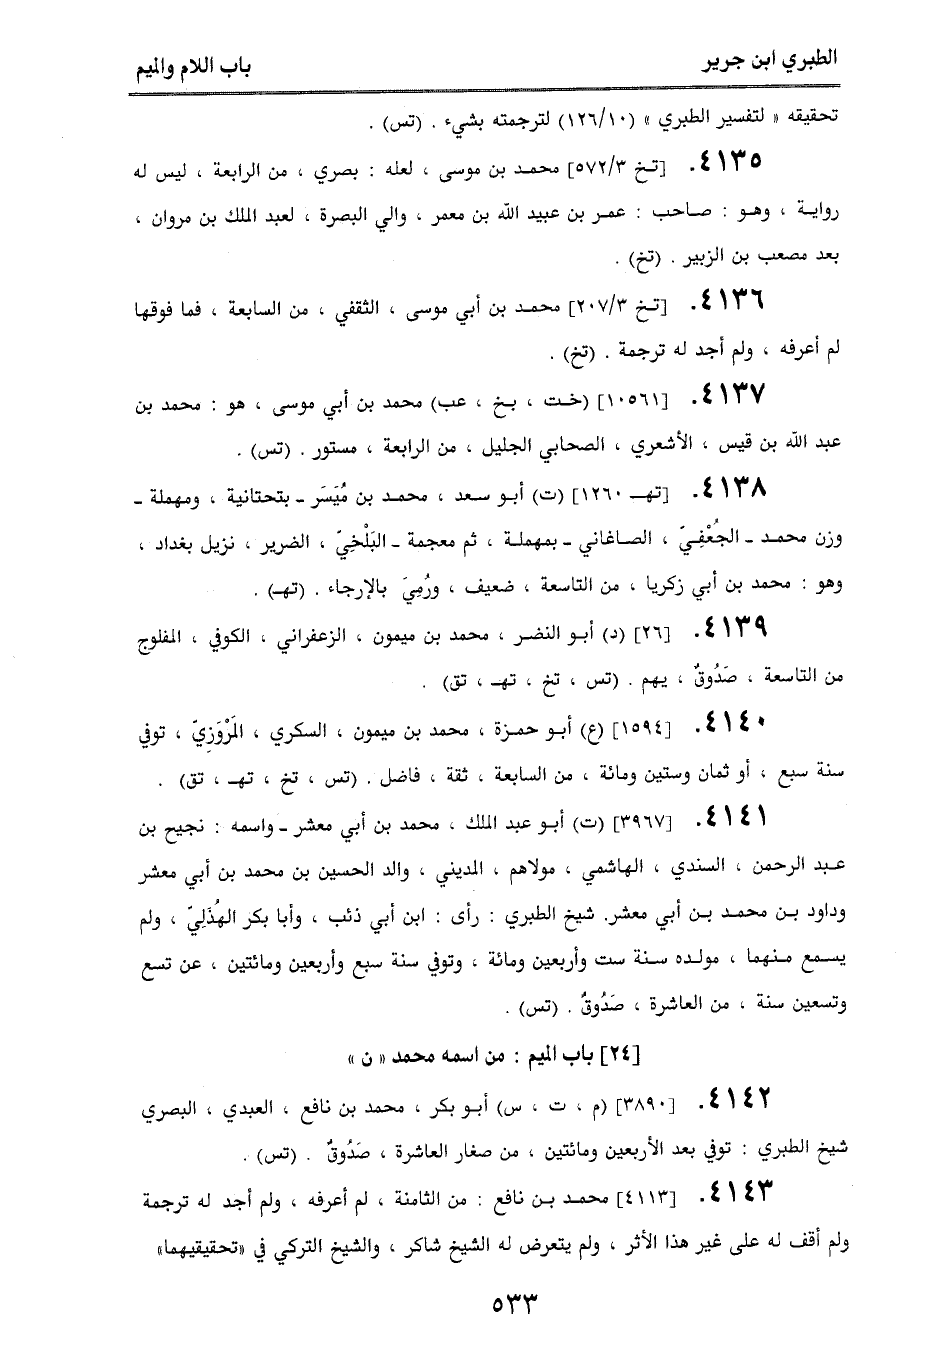 الطبري ابن جرير
باب اللام والميم
تحقيقه « لتفسير الطبري » (١٢٦/١٠) لترجمته بشيء . (تس) .
٤١٣٥. [تـخ ٥٧٢/٣] محمـد بن موسى ، لعله : بصري ، من الرابعة ، ليس له
روايـة ، وهـو : صـاحب : عمـر بن عبيد الله بن معمر ، والي البصرة ، لعبد الملك بن مروان ،
بعد مصعب بن الزبير . (تخ) .
٤١٣٦. [تـخ ٢٠٧/٣] محمـد بن أبي موسى ، الثقفي ، من السابعة ، فما فوقها
لم أعرفه ، ولم أجد له ترجمة . (تخ) .
٤١٣٧. [١٠٥٦١] (خـت ، بـخ ، عب) محمد بن أبي موسى ، هو : محمد بن
عبد الله بن قيس ، الأشعري ، الصحابي الجليل ، من الرابعة ، مستور . (تس) .
٤١٣٨. [تهـ ١٢٦٠] (ت) أبـو سـعد ، محمـد بـن مُيَسَر ـ بتحتانية ، ومهملة ـ
وزن محمـد ـ الجُعْفِـيّ ، الصـاغاني ـ بمهملـة ، ثم معجمة ـ البَلْخِيّ ، الضرير ، نزيل بغداد ،
وهو : محمد بن أبي زكريا ، من التاسعة ، ضعيف ، ورُمِيَ بالإرجاء . (تهـ) .
٤١٣٩. [٢٦] (د) أبـو النضـر ، محمـد بن ميمون ، الزعفراني ، الكوفي ، المفلوج
من التاسعة ، صَدُوقٌ ، يهم . (تس ، تخ ، تهـ ، تق) .
٤١٤٠. [١٥٩٤] (ع) أبـو حمـزة ، محمد بن ميمون ، السكري ، المَرْوَزِيّ ، توفي
سنة سبع ، أو ثمان وستين ومائة ، من السابعة ، ثقة ، فاضل . (تس ، تخ ، تهـ ، تق) .
٤١٤١. [٣٩٦٧] (ت) أبـو عبد الملك ، محمد بن أبي معشر ـ واسمه : نجيح بن
عبـد الرحمن ، السندي ، الهاشمي ، مولاهم ، المديني ، والد الحسين بن محمد بن أبي معشر
وداود بـن محمـد بـن أبي معشر. شيخ الطبري : رأى : ابن أبي ذئب ، وأبا بكر الهُذَلِيّ ، ولم
يسـمع مـنهما ، مولـده سـنة سـت وأربعين ومائة ، وتوفي سنة سبع وأربعين ومائتين ، عن تسع
وتسعين سنة ، من العاشرة ، صَدُوقٌ . (تس) .
[٢٤] باب الميم : من اسمه محمد « ن »
٤١٤٢. [٣٨٩٠] (م ، ت ، س) أبـو بكر ، محمد بن نافع ، العبدي ، البصري
شيخ الطبري : توفي بعد الأربعين ومائتين ، من صغار العاشرة ، صَدُوقٌ . (تس) .
٤١٤٣. [٤١١٣] محمـد بـن نافع : من الثامنة ، لم أعرفه ، ولم أجد له ترجمة
ولم أقف له على غير هذا الأثر ، ولم يتعرض له الشيخ شاكر ، والشيخ التركي في «تحقيقيهما»
٥٣٣